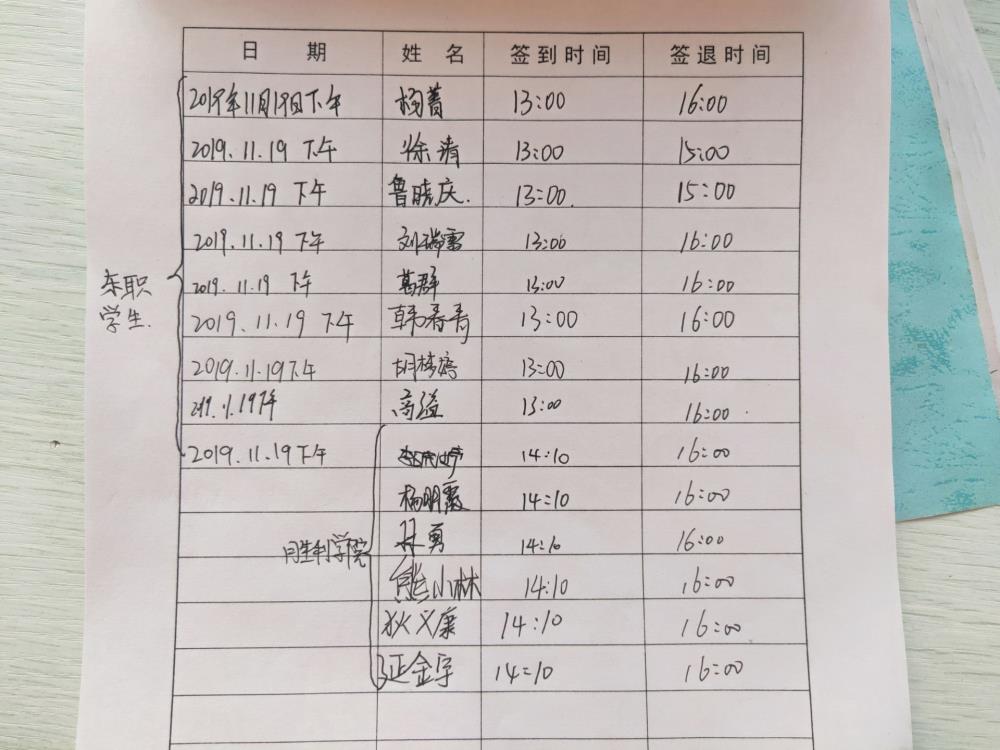 日 期 姓 名 签到时间 签退时间
2019年11月19日下午 杨菁 13:00 16:00
2019.11.19 下午 徐清 13:00 15:00
2019.11.19 下午 鲁晓庆. 13:00. 15:00
2019.11.19 下午 刘瑞雪 13:00 16:00
2019.11.19 下午 葛群 13:00 16:00
2019.11.19 下午 韩春青 13:00 16:00
2019.11.19下午 胡梦婷 13:00 16:00
高溢 13:00 16:00
2019.11.19下午 14:10 16:00
杨明霞 14:10 16:00
林勇 14:10 16:00
熊小林 14:10 16:00
狄义康 14:10 16:00
金宇 14:10 16:00
职
学生.
学院